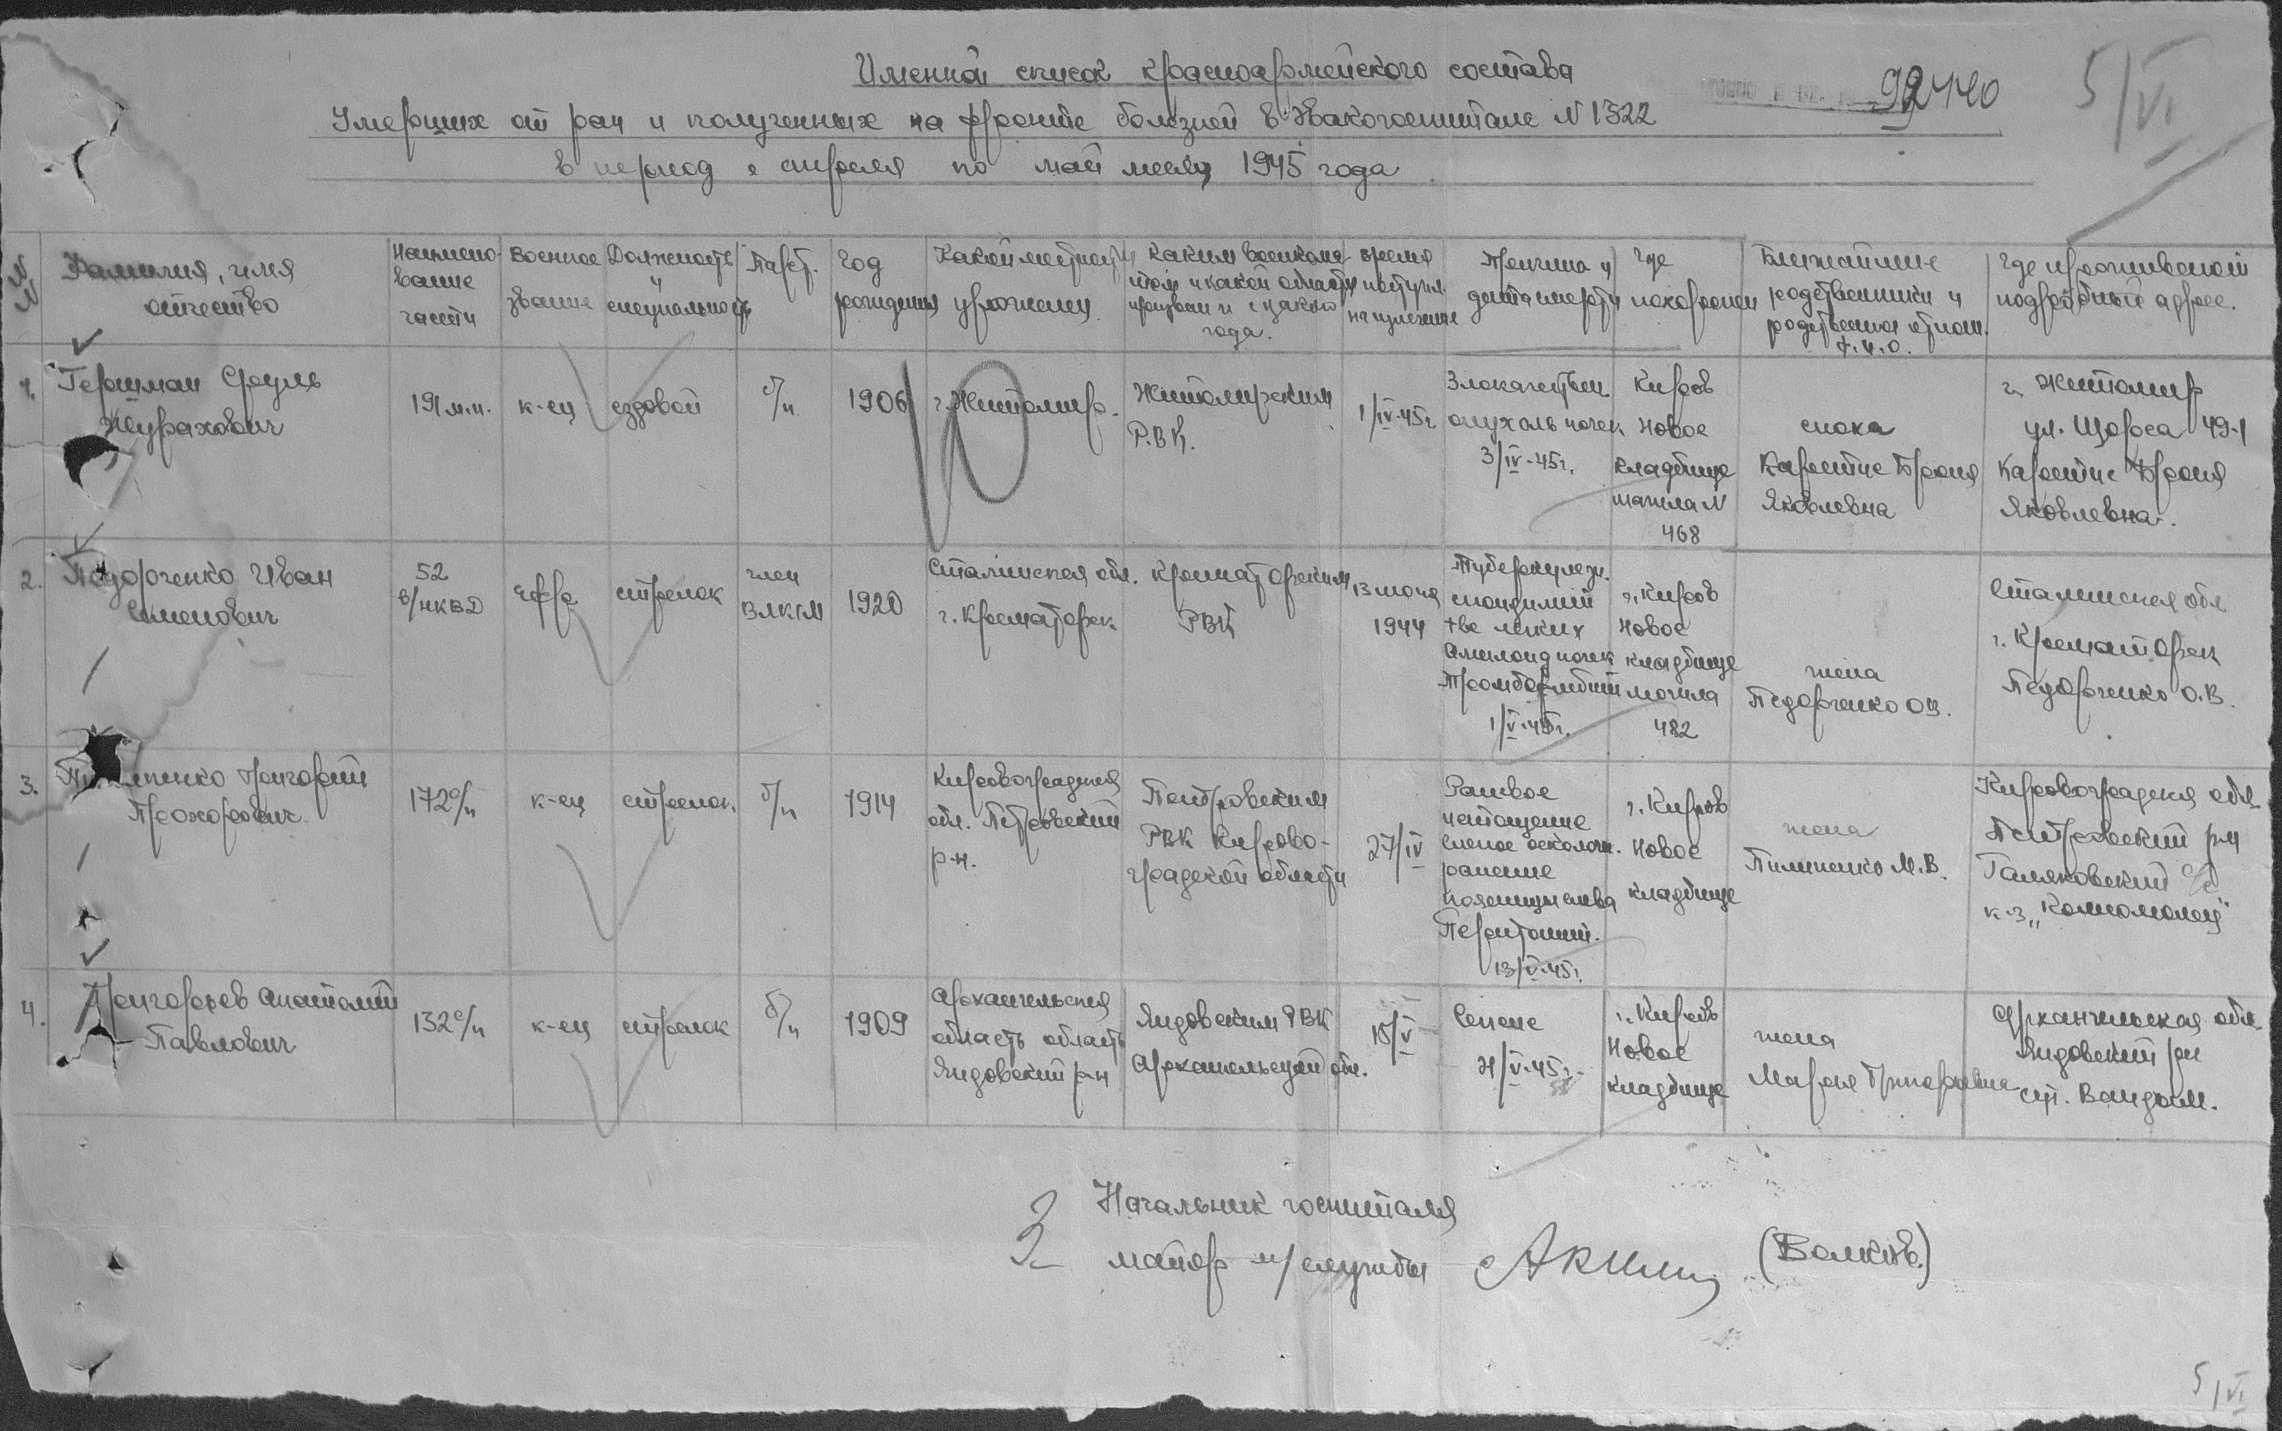 Именной список красноармейского состава
92440
5/VI
Умерших от ран и полученных на фронте болезней в Эвакогоспитале N 1322
в период с апреля по май месяц 1945 года
NN
Фамилия, имя отчество
Наимено-
вание
части
Военное
звание
Должность
и
специальность
Парт.
Год
рождения
Какой местности
уроженец
Каким военкома-
том и какой области
призван и с какого
года.
Время
поступл.
на излечение
Причина и
дата смерти
Где
похоронен
Ближайшие
родственники и
родственн. отнош.
Ф.И.О.
Где проживают
подробный адрес.
1.
Гершман Сруль
191 м.п.
к-ец
ездовой
б/п
1906
г. Житомир.
Житомирским
Р.В.К.
1/IV-45г.
Злокачествен
опухоль почек
3/IV-45г.
Киров
Новое
кладбище
могила N
468
Карентис Броня
Яковлевна
г. Житомир
ул. Щорса 49-1
Карентис Броня
Яковлевна.
2.
Федорченко Иван
Семенович
52
в/НКВД
ефр
стрелок
член
ВЛКСМ
1920
Сталинская обл.
г. Краматорск
Краматорским
РВК
13 июня
1944
Туберкулезн.
спондилит
твс легких
Амилоид почек
Тромбофлебит
1/V-45г.
г. Киров
Новое
кладбище
могила
482
жена
Педорченко О.В.
Сталинская обл
г. Краматорск
Педорченко О.В.
3.
Григорий
Прохорович
172 с/п
к-ец
стрелок.
б/п
1914
Кировоградская
обл. Петровский
р-н.
Петровским
РВК Кирово-
градской области
27/IV
Раневое
истощение
слепое осколочн.
ранение
поясницы слева
Перитонит.
13/V-45г.
г. Киров
Новое
кладбище
жена
Пилипенко М.В.
Кировоградская обл
Петровский р-н
с/с
к-з „Комсомолец"
4.
Григорьев Анатолий
Павлович
132 с/п
к-ец
стрелок
б/п
1909
Архангельская
область область
Яндовский р-н
Яндовским РВК
Архангельской обл.
15/V
Сепсис
21/V-45г.
г. Киров
Новое
кладбище
жена
Мария Григорьевна
Архангельская обл.
Яндовский рн
ст. Вандыш.
Начальник госпиталя
майор м/службы
(Волков.)
5/VI